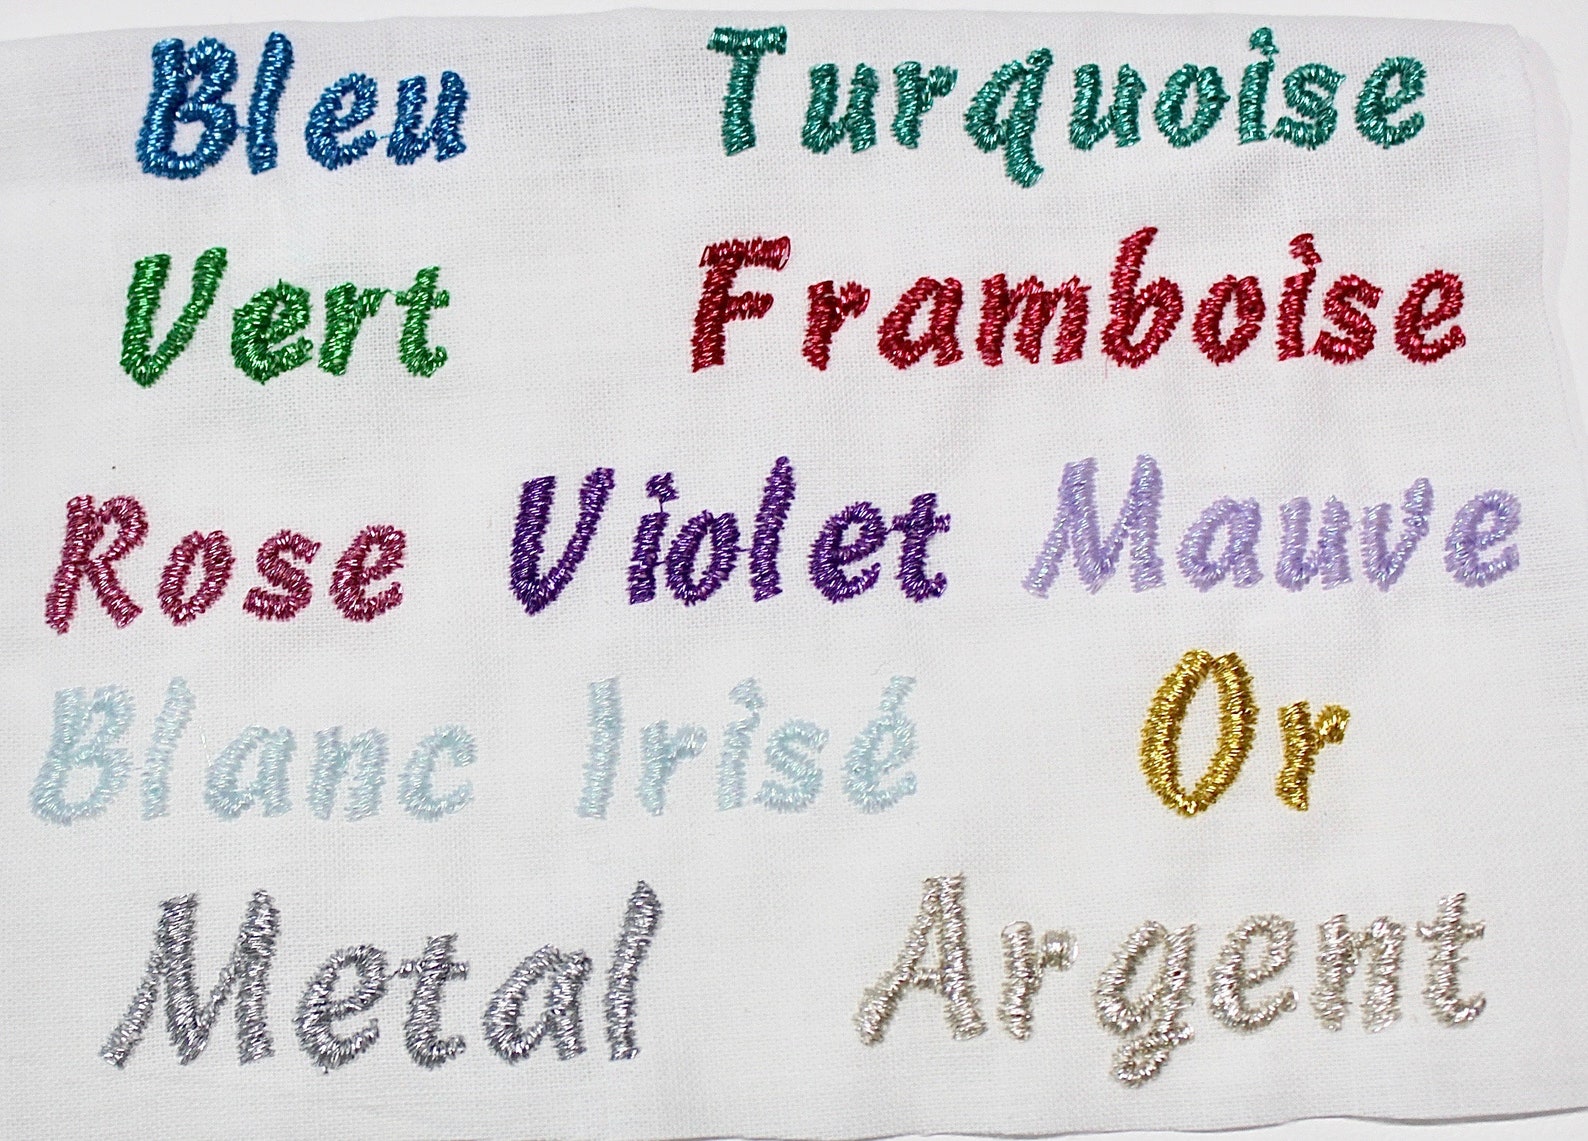 Bleu Turquoise
Vert Framboise
Rose Violet Mauve
Blanc Irisé Or
Metal Argent